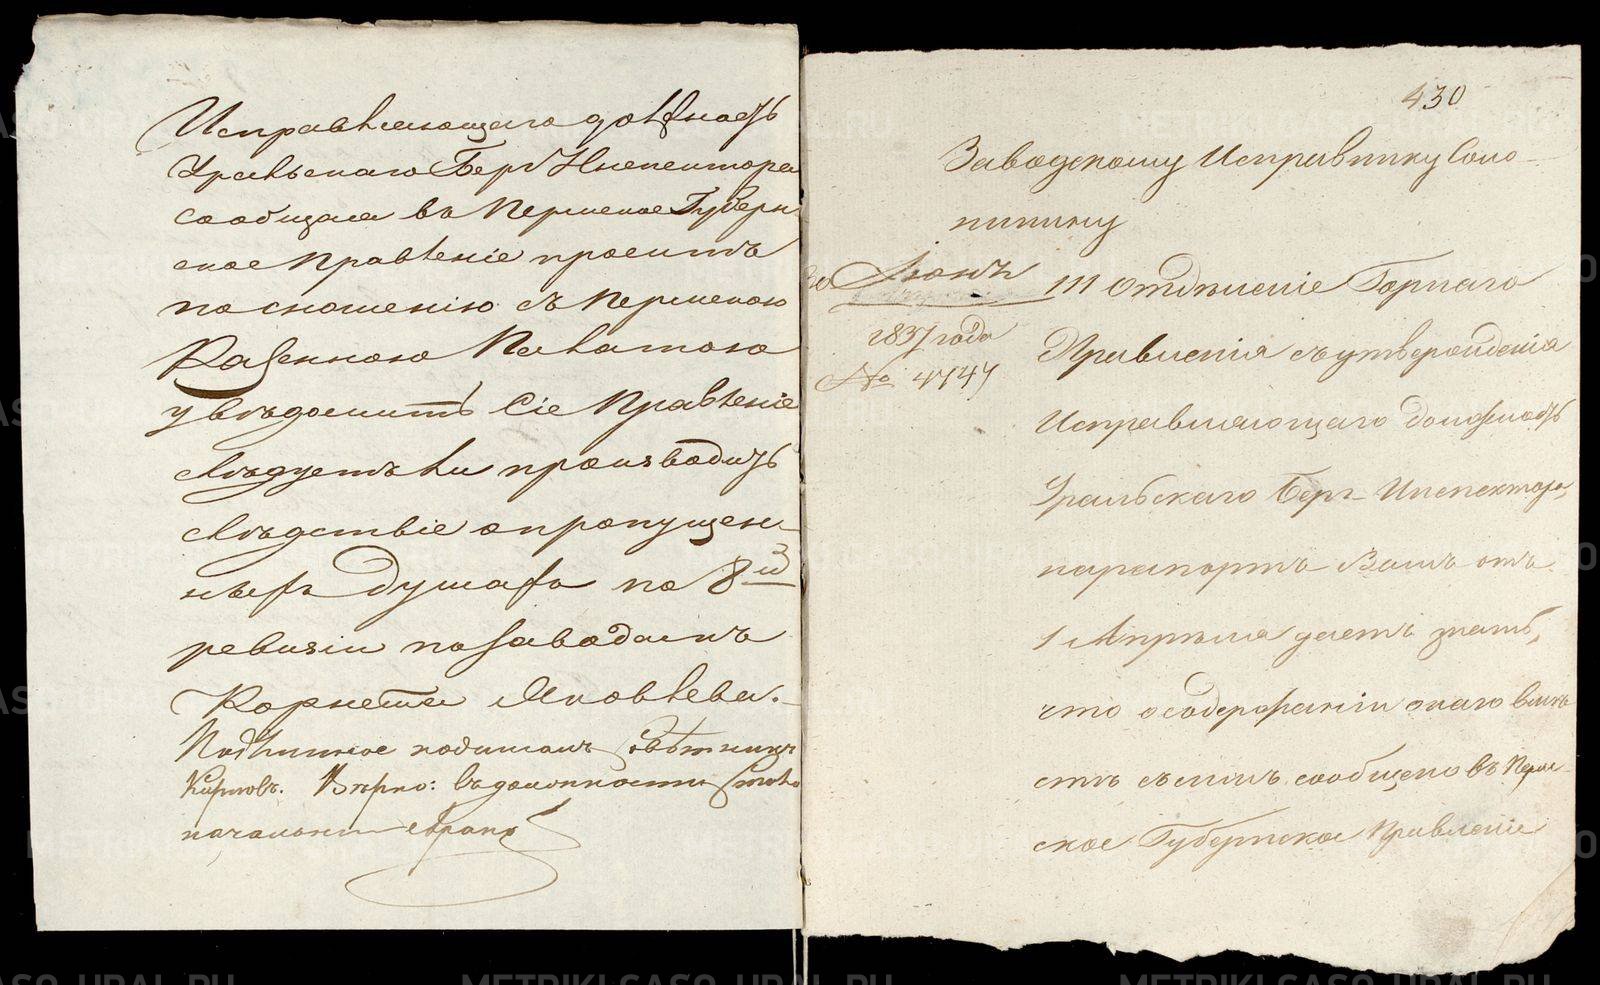 Исправляющаго должность
Уральскаго Берг Инспектора
сообщала въ Пермское Губерн-
ское Правленіе просить
по сношенію съ Пермскою
Казенною Палатою
увѣдомить Сіе Правленіе
Слѣдуетъ ли производить
Слѣдствіе о пропущен-
ныхъ душахъ по 8й
ревизіи по заводамъ
Корнета Яковлева.
Подлинное подписалъ Совѣтникъ
Вѣрно: въ должности Столо
начальника
430
Заводскому Исправнику Соло-
нинину
30 Іюнь
1837 года
№ 4747
III Отдѣленіе Горнаго
Правленія съ утвержденія
Исправляющаго должность
Уральскаго Берг-Инспектора,
на рапортъ Вашъ отъ
1 Апрѣля даетъ знать,
что о содержаніи онаго вмѣ
стѣ съ симъ сообщено въ Перм-
ское Губернское Правленіе
METRIKI.GASO-URAL.RU